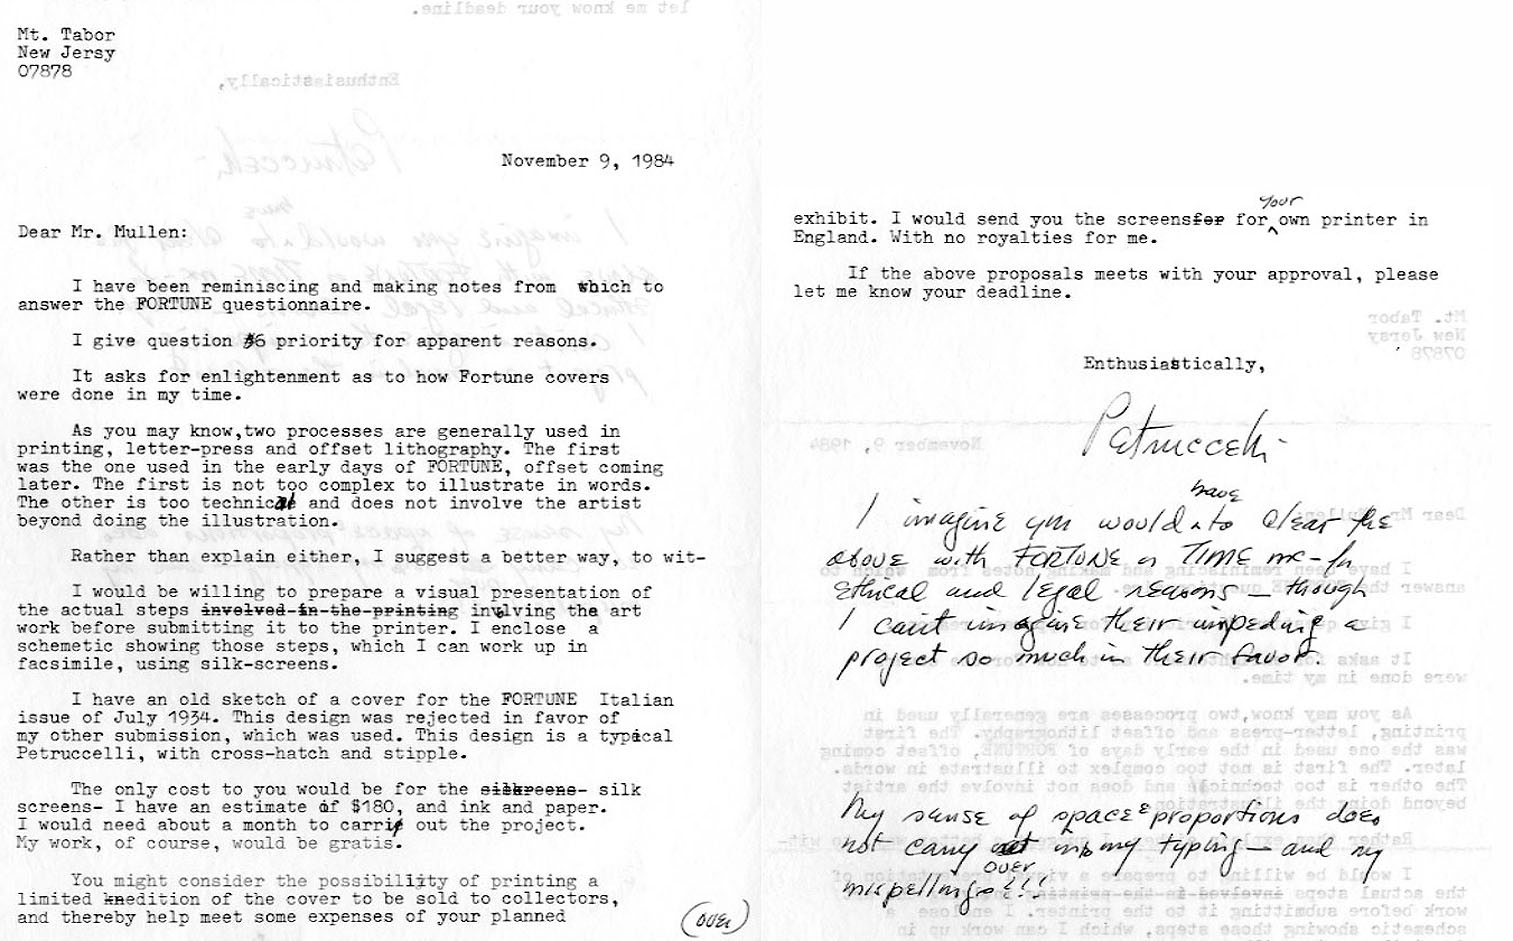 Mt. Tabor
New Jersy
07878
November 9, 1984
Dear Mr. Mullen:
I have been reminiscing and making notes from which to
answer the FORTUNE questionnaire.
I give question #6 priority for apparent reasons.
It asks for enlightenment as to how Fortune covers
were done in my time.
As you may know,two processes are generally used in
printing, letter-press and offset lithography. The first
was the one used in the early days of FORTUNE, offset coming
later. The first is not too complex to illustrate in words.
The other is too technical and does not involve the artist
beyond doing the illustration.
Rather than explain either, I suggest a better way, to wit-
I would be willing to prepare a visual presentation of
the actual steps involved in the printing involving the art
work before submitting it to the printer. I enclose a
schemetic showing those steps, which I can work up in
facsimile, using silk-screens.
I have an old sketch of a cover for the FORTUNE Italian
issue of July 1934. This design was rejected in favor of
my other submission, which was used. This design is a typical
Petruccelli, with cross-hatch and stipple.
The only cost to you would be for the silkreens- silk
screens- I have an estimate of $180, and ink and paper.
I would need about a month to carry out the project.
My work, of course, would be gratis.
You might consider the possibility of printing a
limited edition of the cover to be sold to collectors,
and thereby help meet some expenses of your planned
(over)
exhibit. I would send you the screensfor for your own printer in
England. With no royalties for me.
If the above proposals meets with your approval, please
let me know your deadline.
Enthusiastically,
Petruccelli
I imagine you would have to clear the
above with FORTUNE or TIME inc - for
ethical and legal reasons — though
I can't imagine their impeding a
project so much in their favor.
My sense of space & proportions does
not carry over into my typing — and my
mispellings!!!